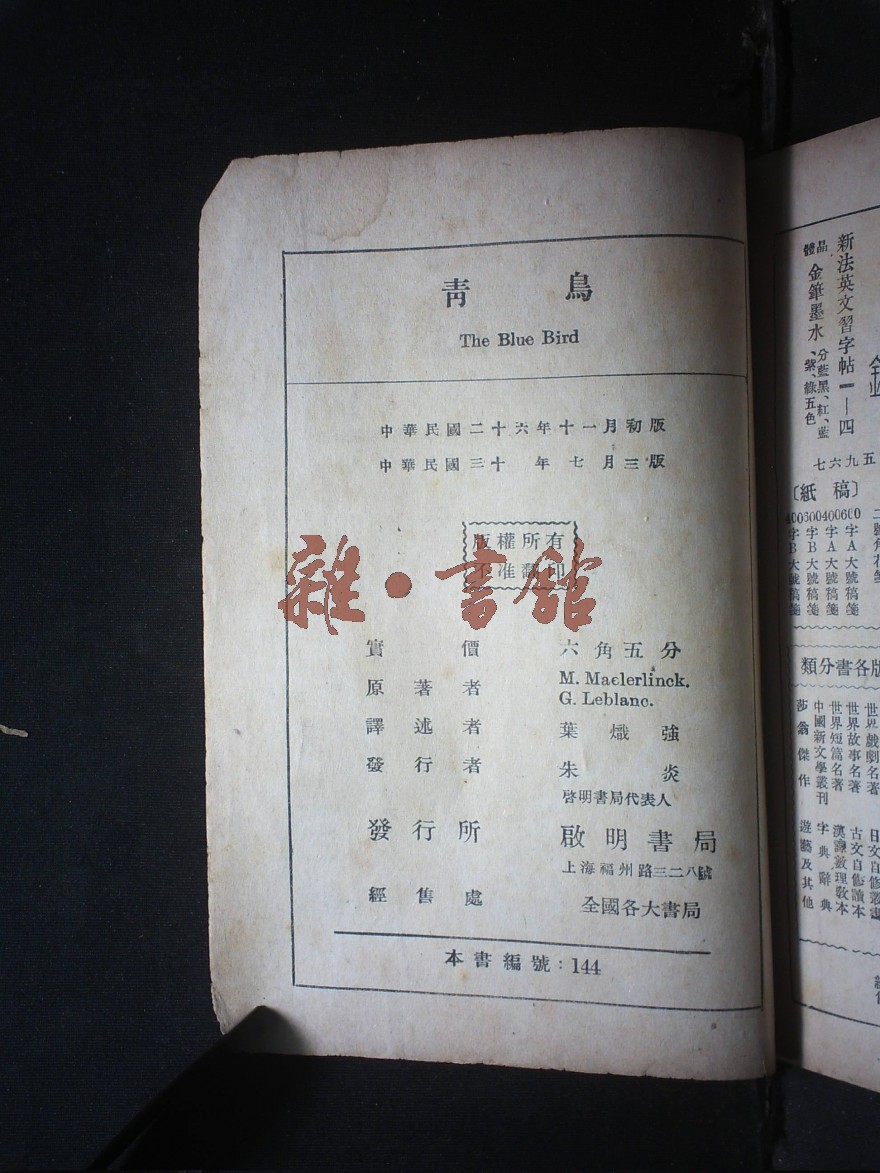 青鳥
The Blue Bird
中華民國二十六年十一月初版
中華民國三十年七月三版
版權所有
不准翻印
雜·書館
實價 六角五分
原著者 M. Maclerlinck.
G. Leblanc.
譯述者 葉熾強
發行者 朱炎
啓明書局代表人
發行所 啟明書局
上海福州路三二八號
經售處 全國各大書局
本書編號：144
新法英文習字帖一—四
晶體金筆墨水、分藍黑、紅、藍、紫、綠五色
七六九五
〔紙稿〕
600字A大號稿箋
400字A大號稿箋
600字B大號稿箋
400字B大號稿箋
類分書各版
世界戲劇名著
世界故事名著
世界短篇名著
中國新文學叢刊
莎翁傑作
日文自修叢書
古文自修讀本
漢譯數理教本
字典辭典
遊藝及其他